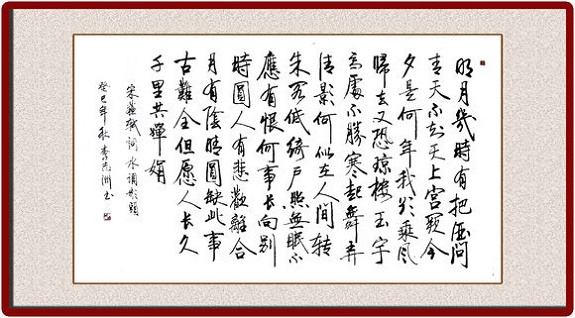 明月幾時有把酒問
青天不知天上宮闕今
夕是何年我欲乘風
歸去又恐琼樓玉宇
高處不勝寒起舞弄
清影何似在人間转
朱阁低綺户照無眠不
應有恨何事長向别
時圓人有悲歡離合
月有陰晴圓缺此事
古難全但愿人長久
千里共嬋娟
宋蘇軾詞水調歌頭
癸巳年秋李洲书